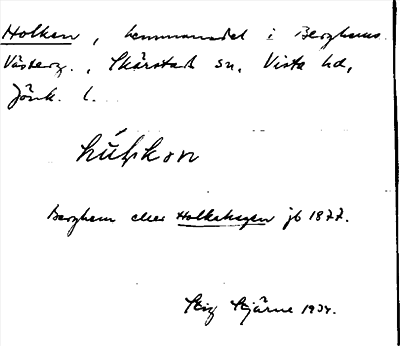 Holken, hemmansdel i Berghems
Västerg., Skärstad sn, Vista hd,
Jönk. l.
Berghem eller Holkahagen jb 1877.
Stig Stjärne 1934.